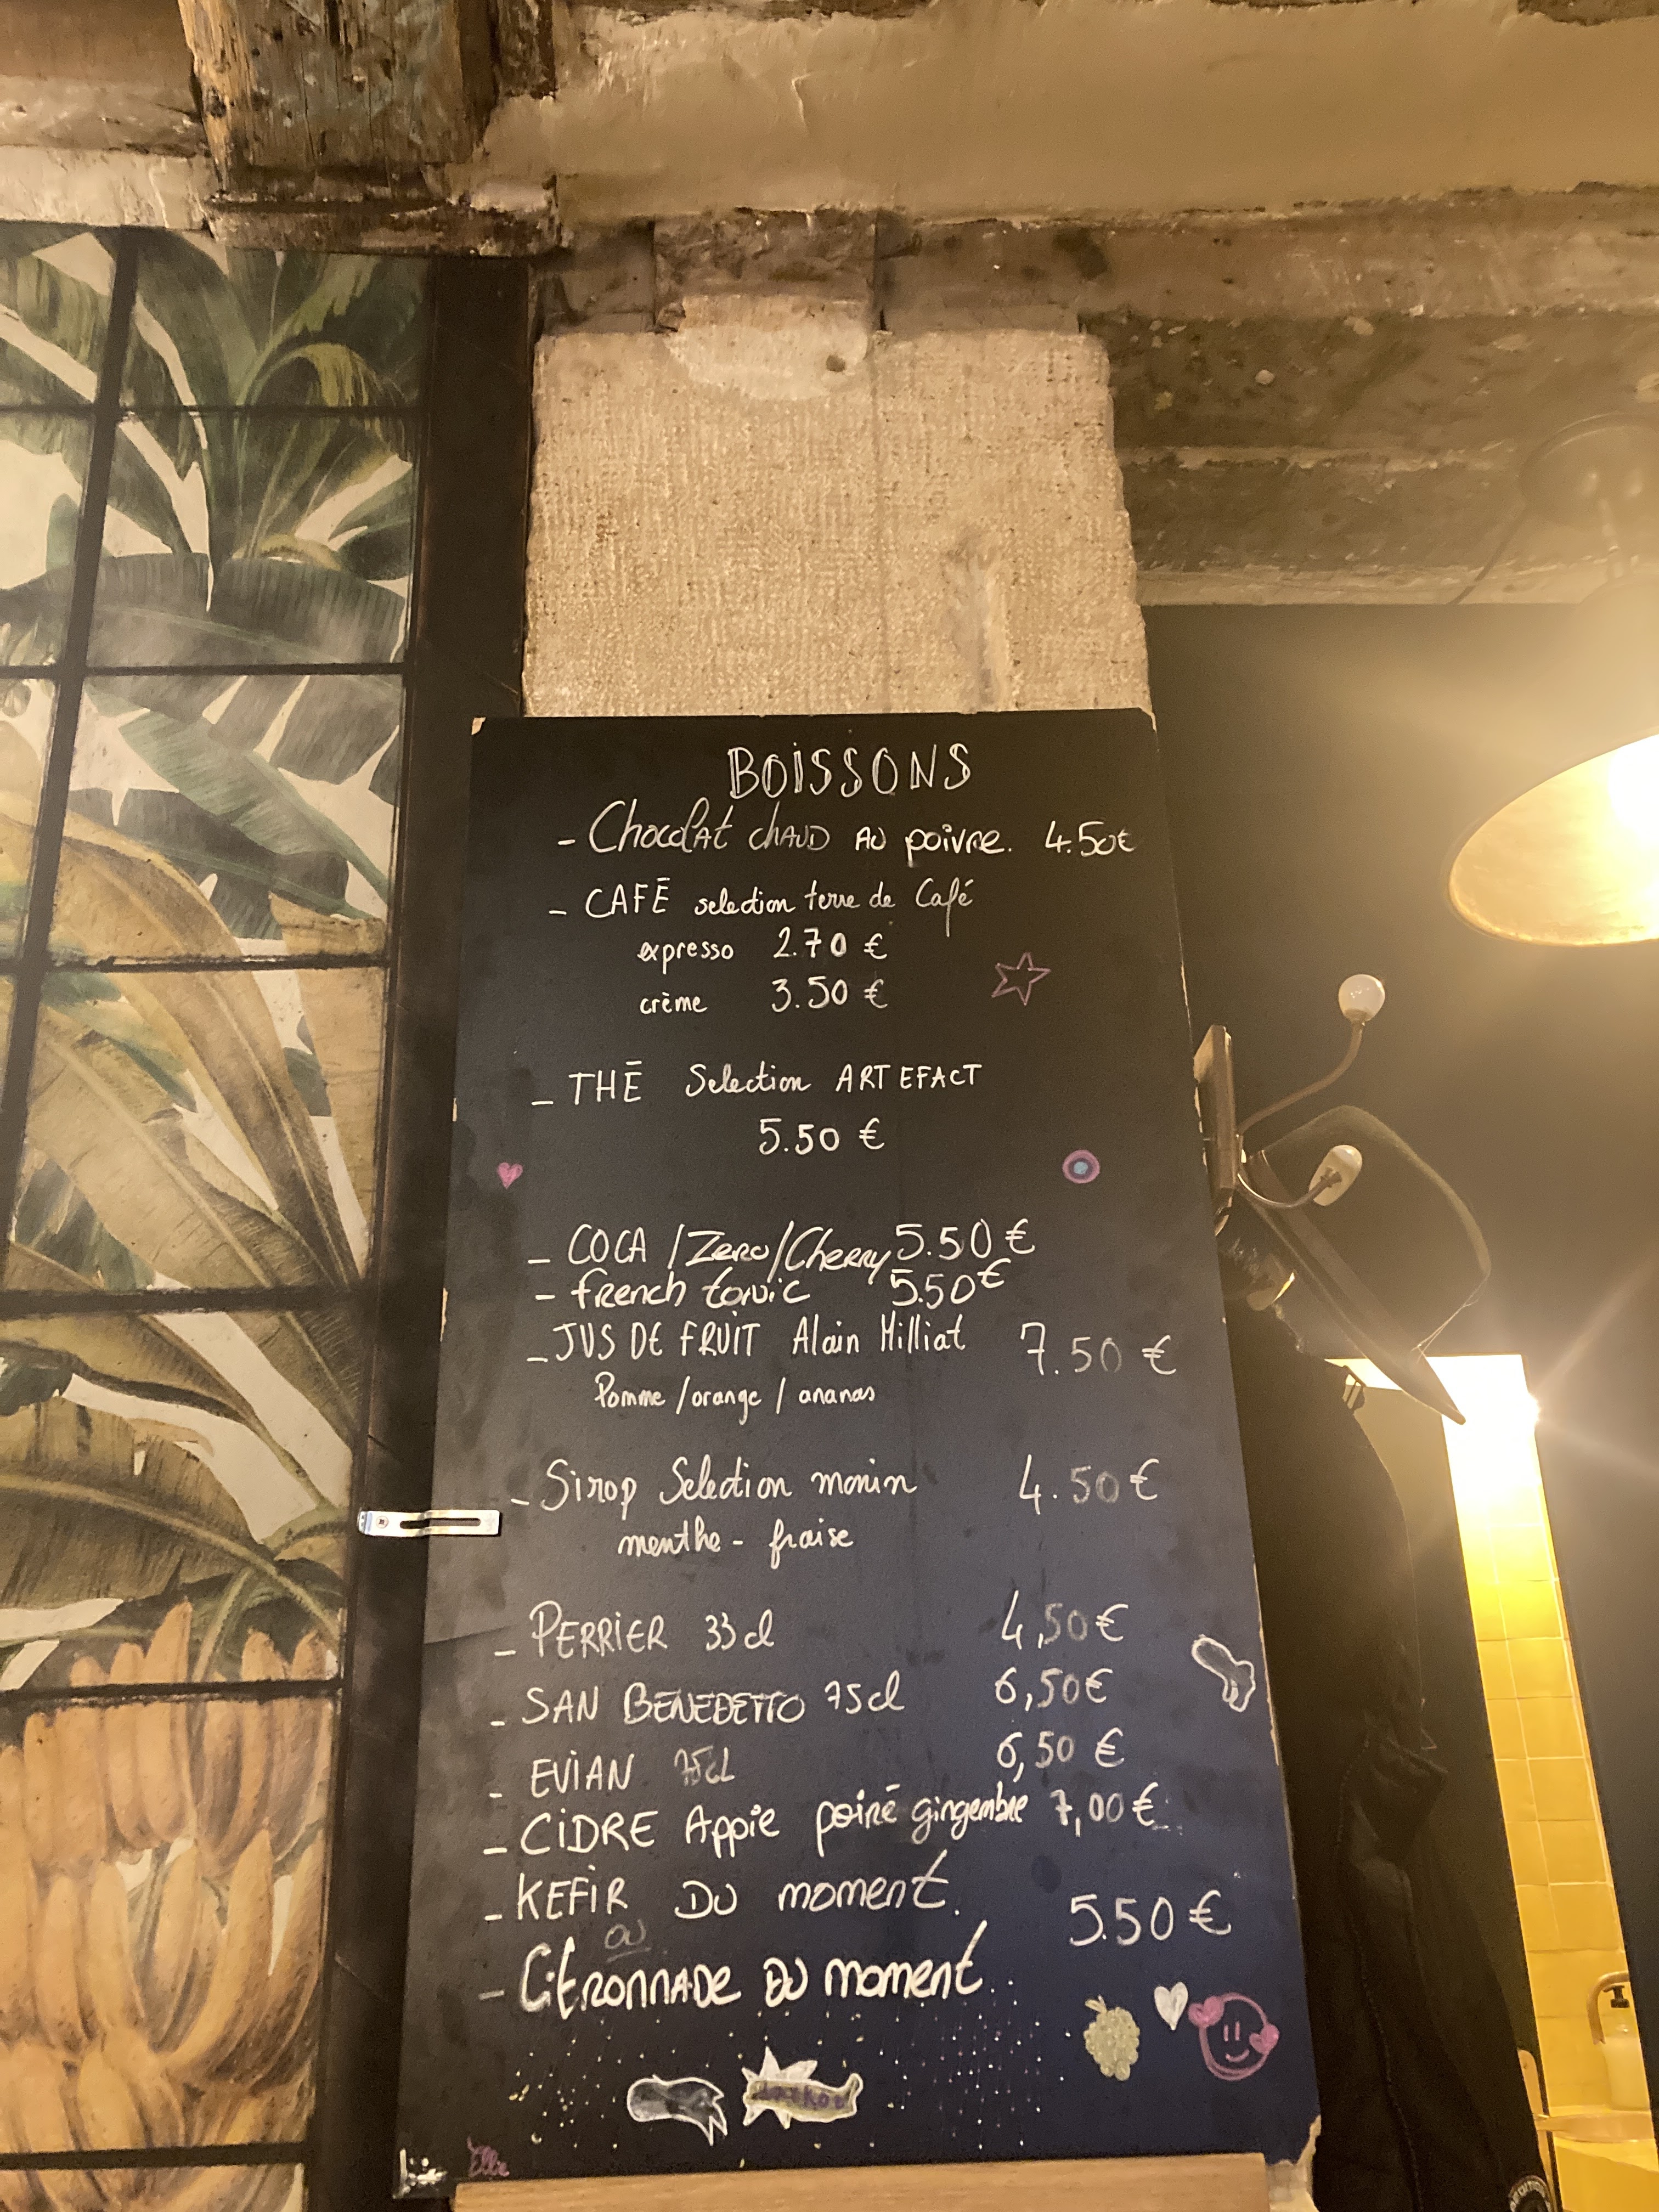 BOISSONS
- Chocolat chaud au poivre. 4.50€
- CAFÉ selection terre de Café
expresso 2.70 €
crème 3.50 €
- THÉ Selection ARTEFACT
5.50 €
- COCA / Zero / Cherry 5.50 €
- french tonic 5.50€
- JUS DE FRUIT Alain Milliat 7.50 €
Pomme / orange / ananas
- Sirop Selection monin 4.50 €
menthe - fraise
- PERRIER 33cl 4,50€
- SAN BENEDETTO 75cl 6,50€
- EVIAN 75cl 6,50 €
- CIDRE Appie poiré gingembre 7,00€
- KEFIR DU moment. 5.50 €
ou
- CITRONNADE DU moment.
Ellie